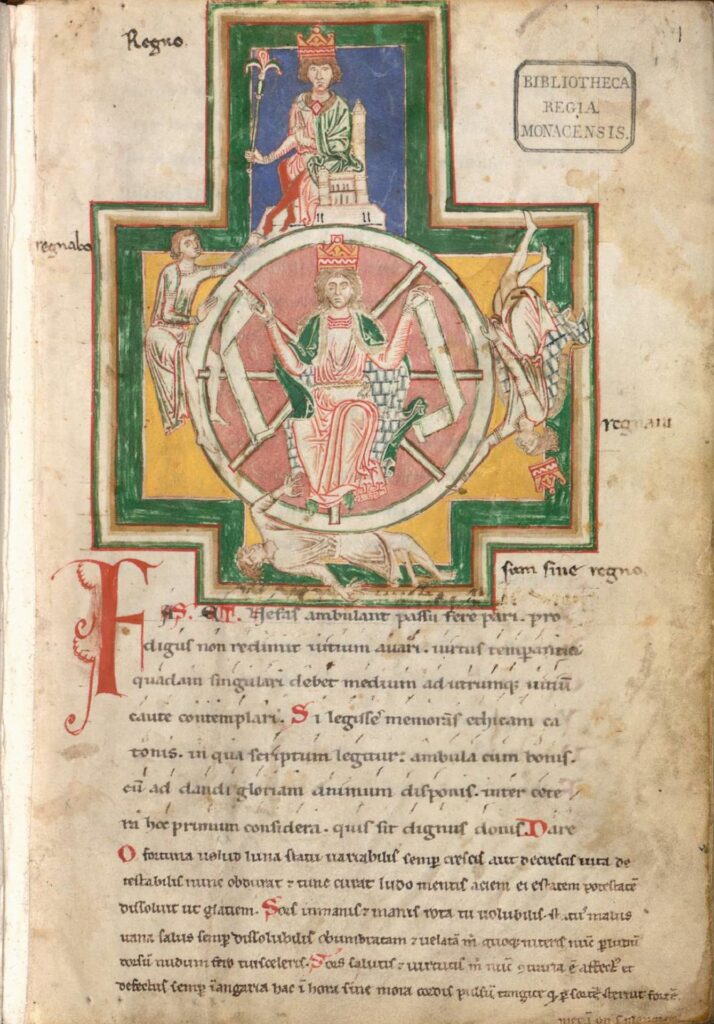 Regno
BIBLIOTHECA
REGIA
MONACENSIS.
regnabo
regnaui
sum sine regno
FAS. ET Nefas ambulant passu fere pari. pro
digus non redimit uitium auari. uirtus temperantia
quadam singulari debet medium ad utrumq; uitiū
caute contemplari. Si legisse memoras ethicam ca
tonis. in qua scriptum legitur: ambula cum bonis.
cū ad dandi gloriam animum disponis. inter cete
ra hoc primum considera. quis sit dignus donis. Dare
O fortuna uelud luna statu uariabilis semp crescis aut decrescis uita de
testabilis nunc obdurat ⁊ tunc curat ludo mentis aciem egestatem potestatē
dissoluit ut glatiem. Sors inmanis ⁊ inanis rota tu uolubilis status malus
uana salus semp dissolubilis obumbratam ⁊ uelatam m̄ quoq; niteris nūc p ludū
dorsū nudum fero tui sceleris. Sors salutis ⁊ uirtutis m̄ nūc ꝯtraria ē affect; et
defectus semp ī angaria hac ī hora sine mora cordis pulsū tangite q̄ p sortē sternit fortē